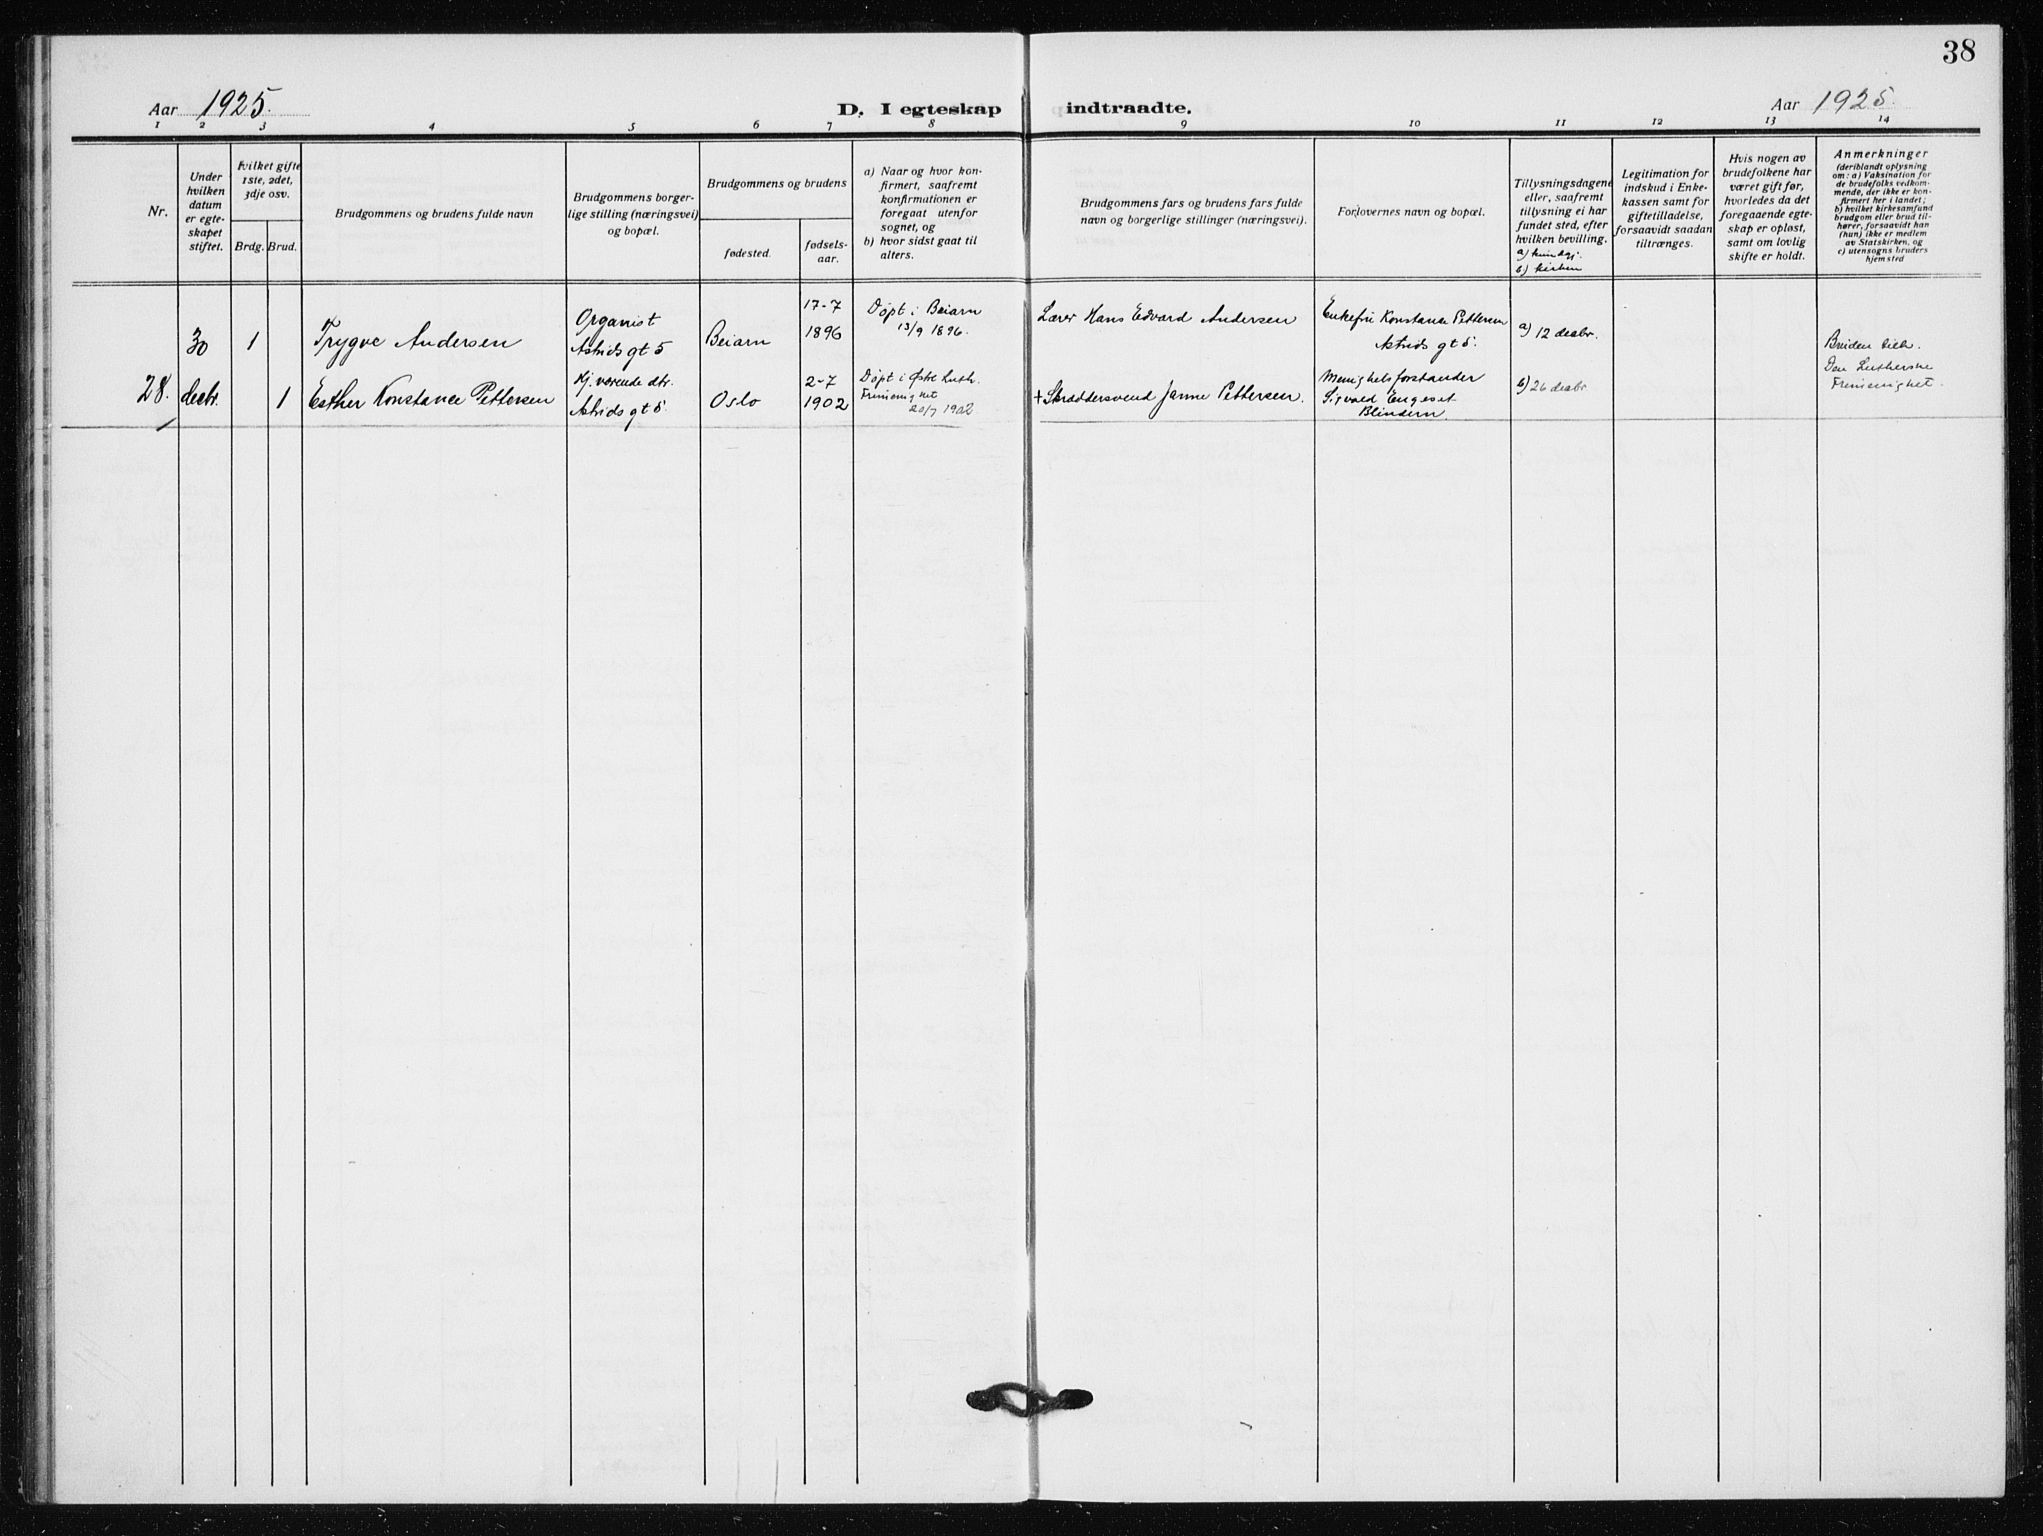 38
Aar 1925.
D. I egteskap indtraadte.
Aar 1925.
1 2 3 4 5 6 7 8 9 10 11 12 13 14
Nr.
Under
hvilken
datum
er egte-
skapet
stiftet.
Hvilket gifte
1ste, 2det,
3dje osv.
Brdg. Brud.
Brudgommens og brudens fulde navn
Brudgommens borger-
lige stilling (næringsvei)
og bopæl.
Brudgommens og brudens
fødested.
fødsels-
aar.
a) Naar og hvor kon-
firmert, saafremt
konfirmationen er
foregaat utenfor
sognet, og
b) hvor sidst gaat til
alters.
Brudgommens fars og brudens fars fulde
navn og borgerlige stillinger (næringsvei).
Forlovernes navn og bopæl.
Tillysningsdagene
eller, saafremt
tillysning ei har
fundet sted, efter
hvilken bevilling.
a) kundgj.
b) kirken
Legitimation for
indskud i Enke-
kassen samt for
giftetilladelse,
forsaavidt saadan
tiltrænges.
Hvis nogen av
brudefolkene har
været gift før,
hvorledes da det
foregaaende egte-
skap er opløst,
samt om lovlig
skifte er holdt.
Anmerkninger
(deriblandt oplysning
om: a) Vaksination for
de brudefolks vedkom-
mende, der ikke er kon-
firmert her i landet;
b) hvilket kirkesamfund
brudgom eller brud til-
hører, forsaavidt han
(hun) ikke er medlem
av Statskirken, og
c) utensogns bruders
hjemsted
28.
30
decbr.
1
1
Trygve Andersen
Esther Konstance Pettersen
Organist
Astrids gt 5
Hj. værende dtr.
Astrids gt 5
Beiarn
Oslo
17-7
1896
2-7
1902
Døpt i Beiarn
13/9 1896.
Døpt i Østre Luth.
Frimenighet
20/7 1902
Lærer Hans Edvard Andersen
+ Skræddersvend Janne Pettersen.
Enkefru Konstance Pettersen
Astrids gt 5.
Menighetsforstander
Sigvald Engeset
Blindern
a) 12 decbr.
b) 26 decbr
Bruden
Den Lutherske
Frimenighet.